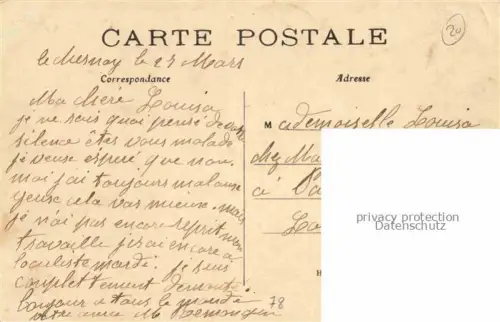 CARTE POSTALE
20
le Mesnay le 25 Mars
Correspondance
Adresse
Ma chère Louisa
je ne sais quoi pensé de votre
silence êtes vous malade
je veuse esperé que non.
moi j'ai toujours mal aux
yeuse cela vas mieux. mais
je n'ai pas encore reprit mon
travaille j'irai encore a
loculeste mardi. je suis
complettement demonté.
bonjour a tous le monde
votre amie M
78
Mademoiselle Louisa
chez Ma
à
privacy protection